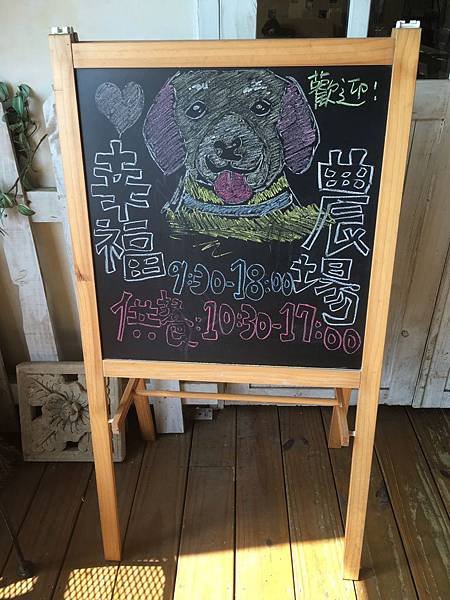 歡迎!
幸福
農場
9:30-18:00
供餐:10:30-17:00